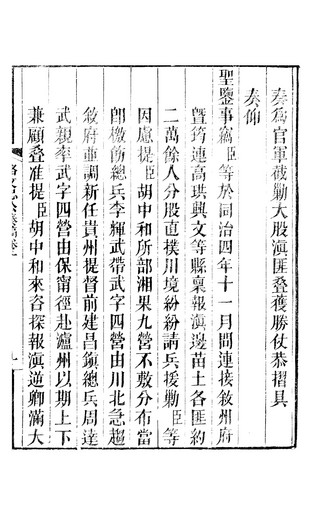 奏為官軍截勦大股滇匪叠獲勝仗恭摺具
奏仰
聖鑒事竊臣等於同治四年十一月間連接敘州府
曁筠連高珙興文等縣稟報滇邊苗土各匪約
二萬餘人分股直撲川境紛紛請兵援勦臣等
因慮提臣胡中和所部湘果九營不敷分布當
卽檄飭總兵李輝武帶武字四營由川北急趨
敘府並調新任貴州提督前建昌鎮總兵周達
武親率武字四營由保甯徑赴瀘州以期上下
兼顧叠准提臣胡中和來咨探報滇逆卿滿大
駱文忠公奏稿卷